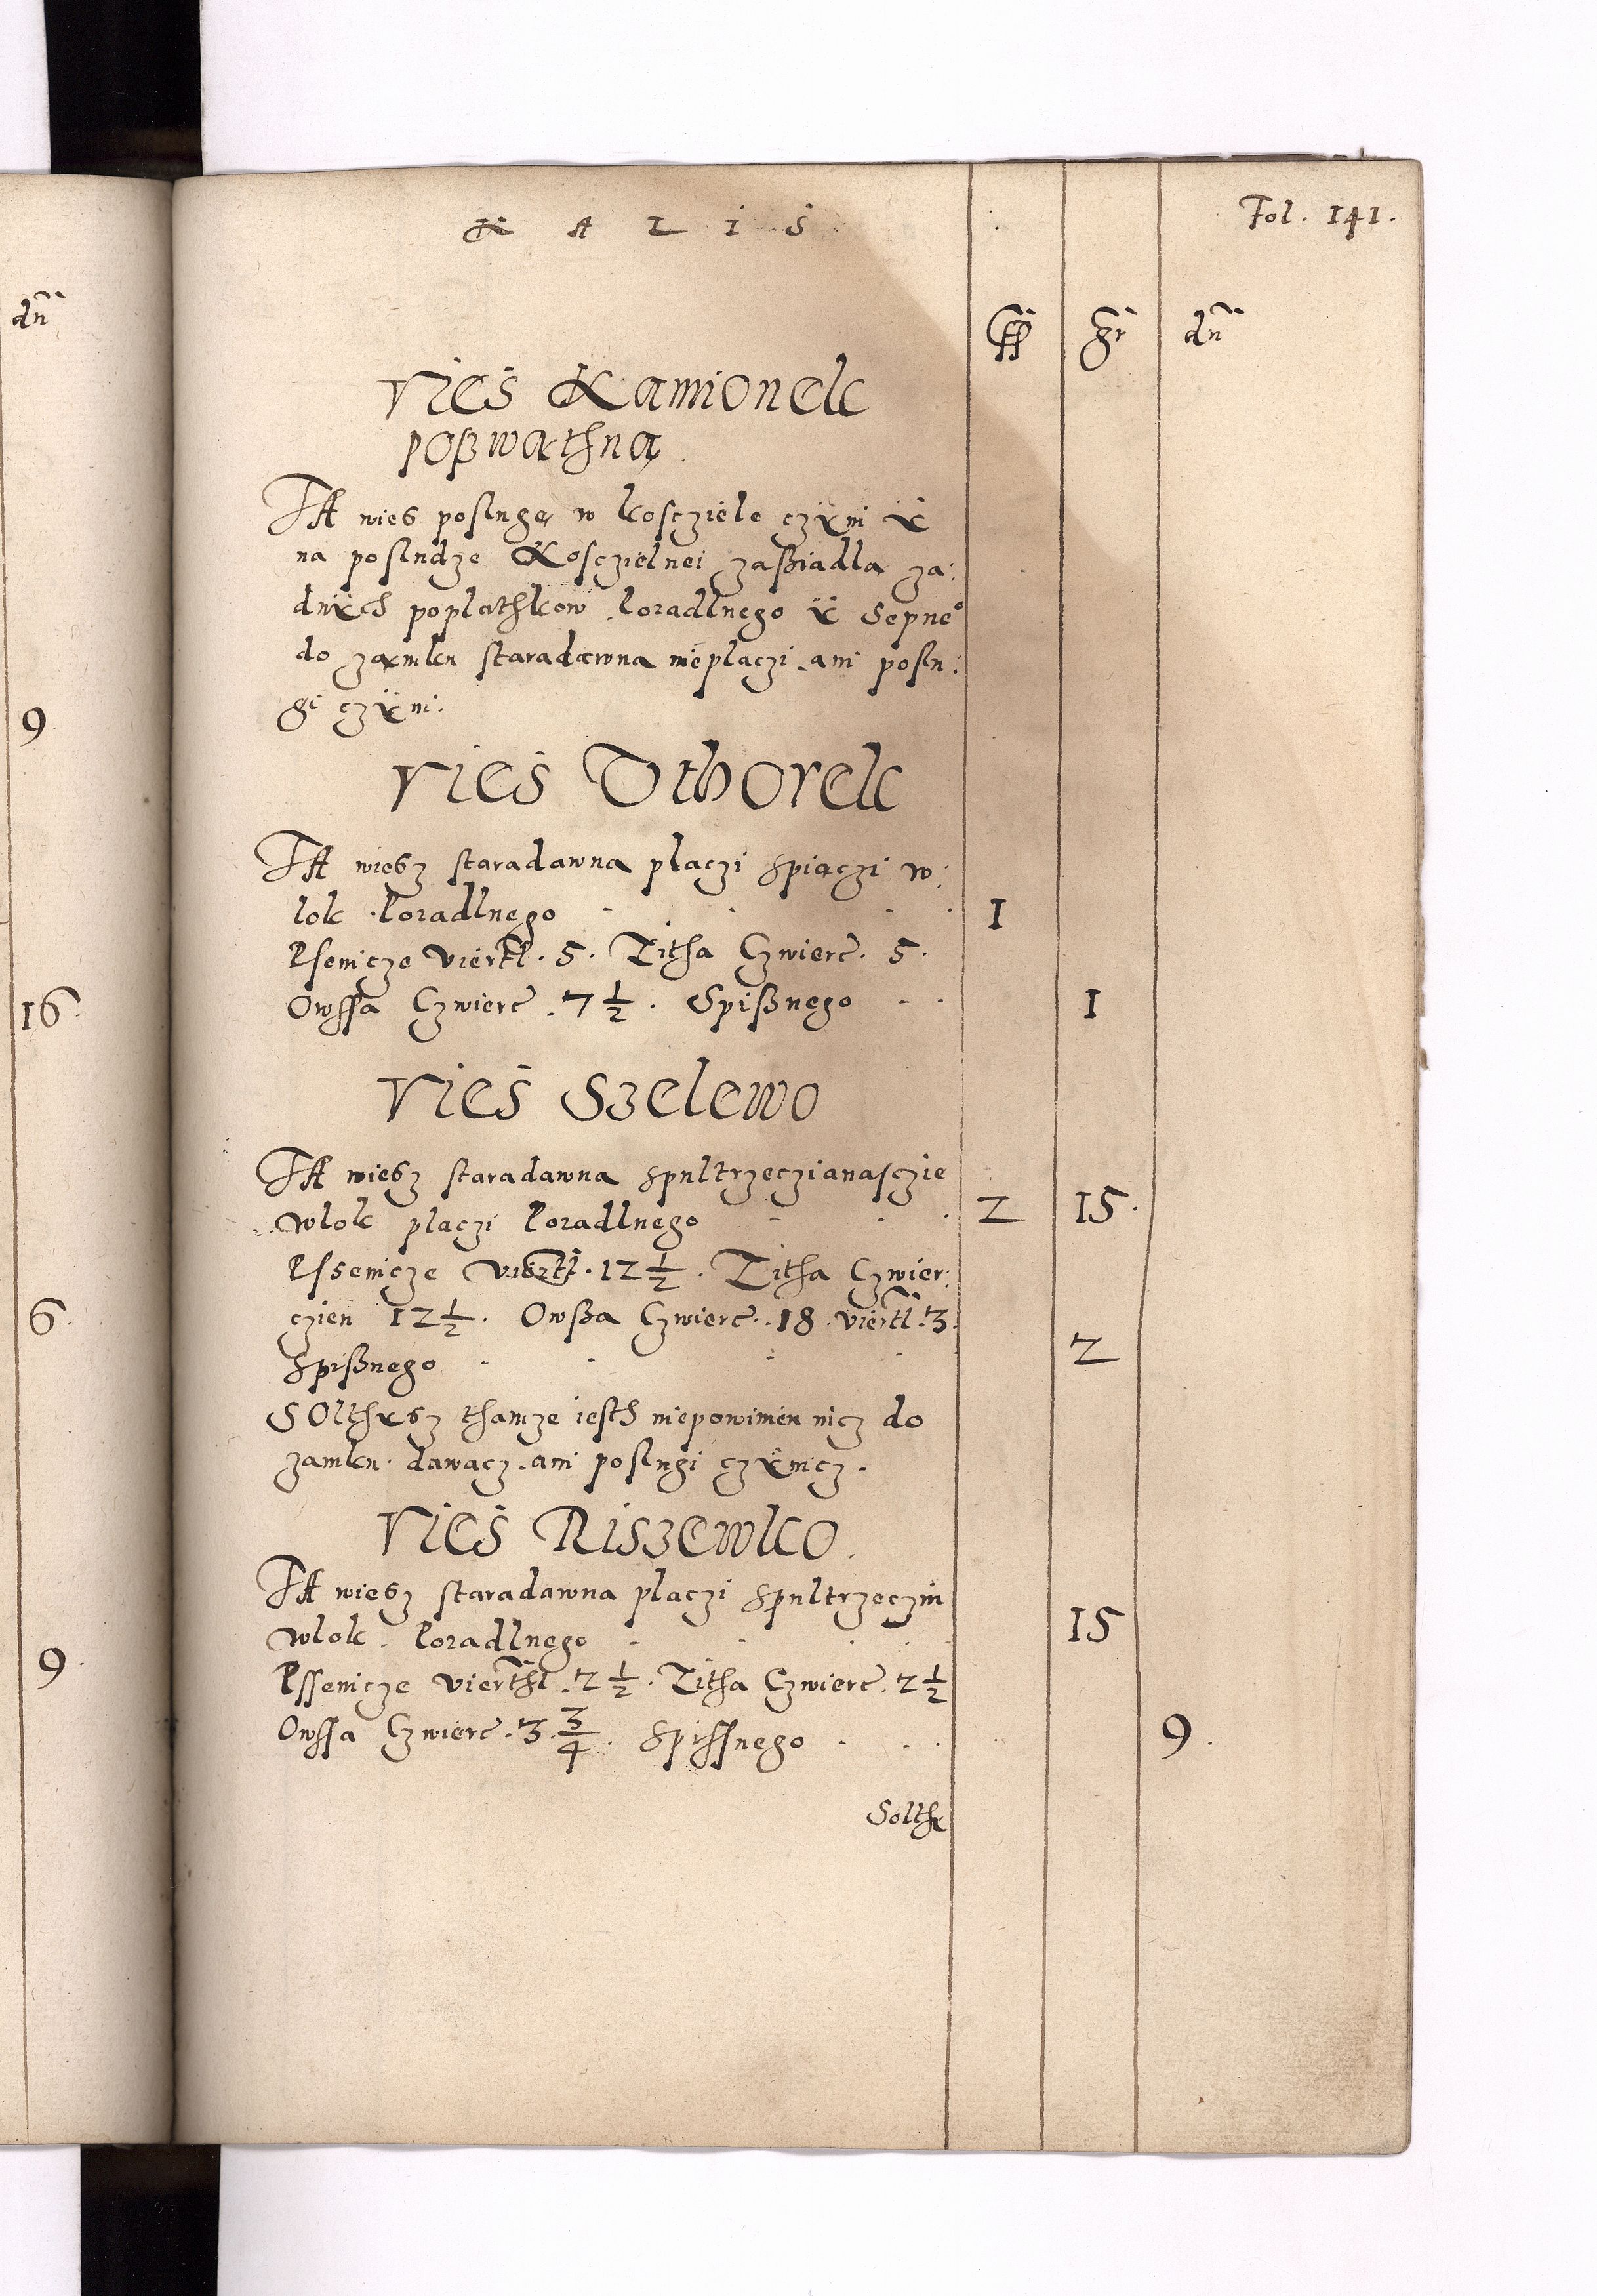 KALIS
Fol. 141.
gr dn
Vies Kamionek
poßwathna
TA wies poslugę w kosczięle czÿni ÿ
na posludze Kosczielnei zaßiadla za:
dnÿch poplathkow Poradlnego ÿ Sepneº
do zamku staradawna nieplaczi ani poslu:
gi czÿni.
Vies Vthorek
TA wiesz staradawna placzi spiaczi w:
lok Poradlnego 1
Psenicze viertl. 5. Zitha Czwierc. 5.
Owssa Czwierc 7 1/2. Spißnego 1
Vies Szelewo
TA wiesz staradawna spultrzeczianasczie
wlok placzi Poradlnego 2 15.
Pssenicze viertl. 12 1/2. Zitha Czwier:
czien 12 1/2. Owßa Czwierc. 18. viertl. 3.
Spißnego 2
SOlthÿsz thamze iesth niepowinien nicz do
zamku dawacz ani poslugi czÿnicz.
Vies Riszewko.
TA wiesz staradawna placzi spultrzeczin
wlok. Poradlnego 15
Pssenicze vierthl. 2 1/2. Zitha Czwierc. 2 1/2
Owssa Czwierc. 3. 3/4. Spissnego 9.
Solthÿ
dn
9
16.
6.
9.